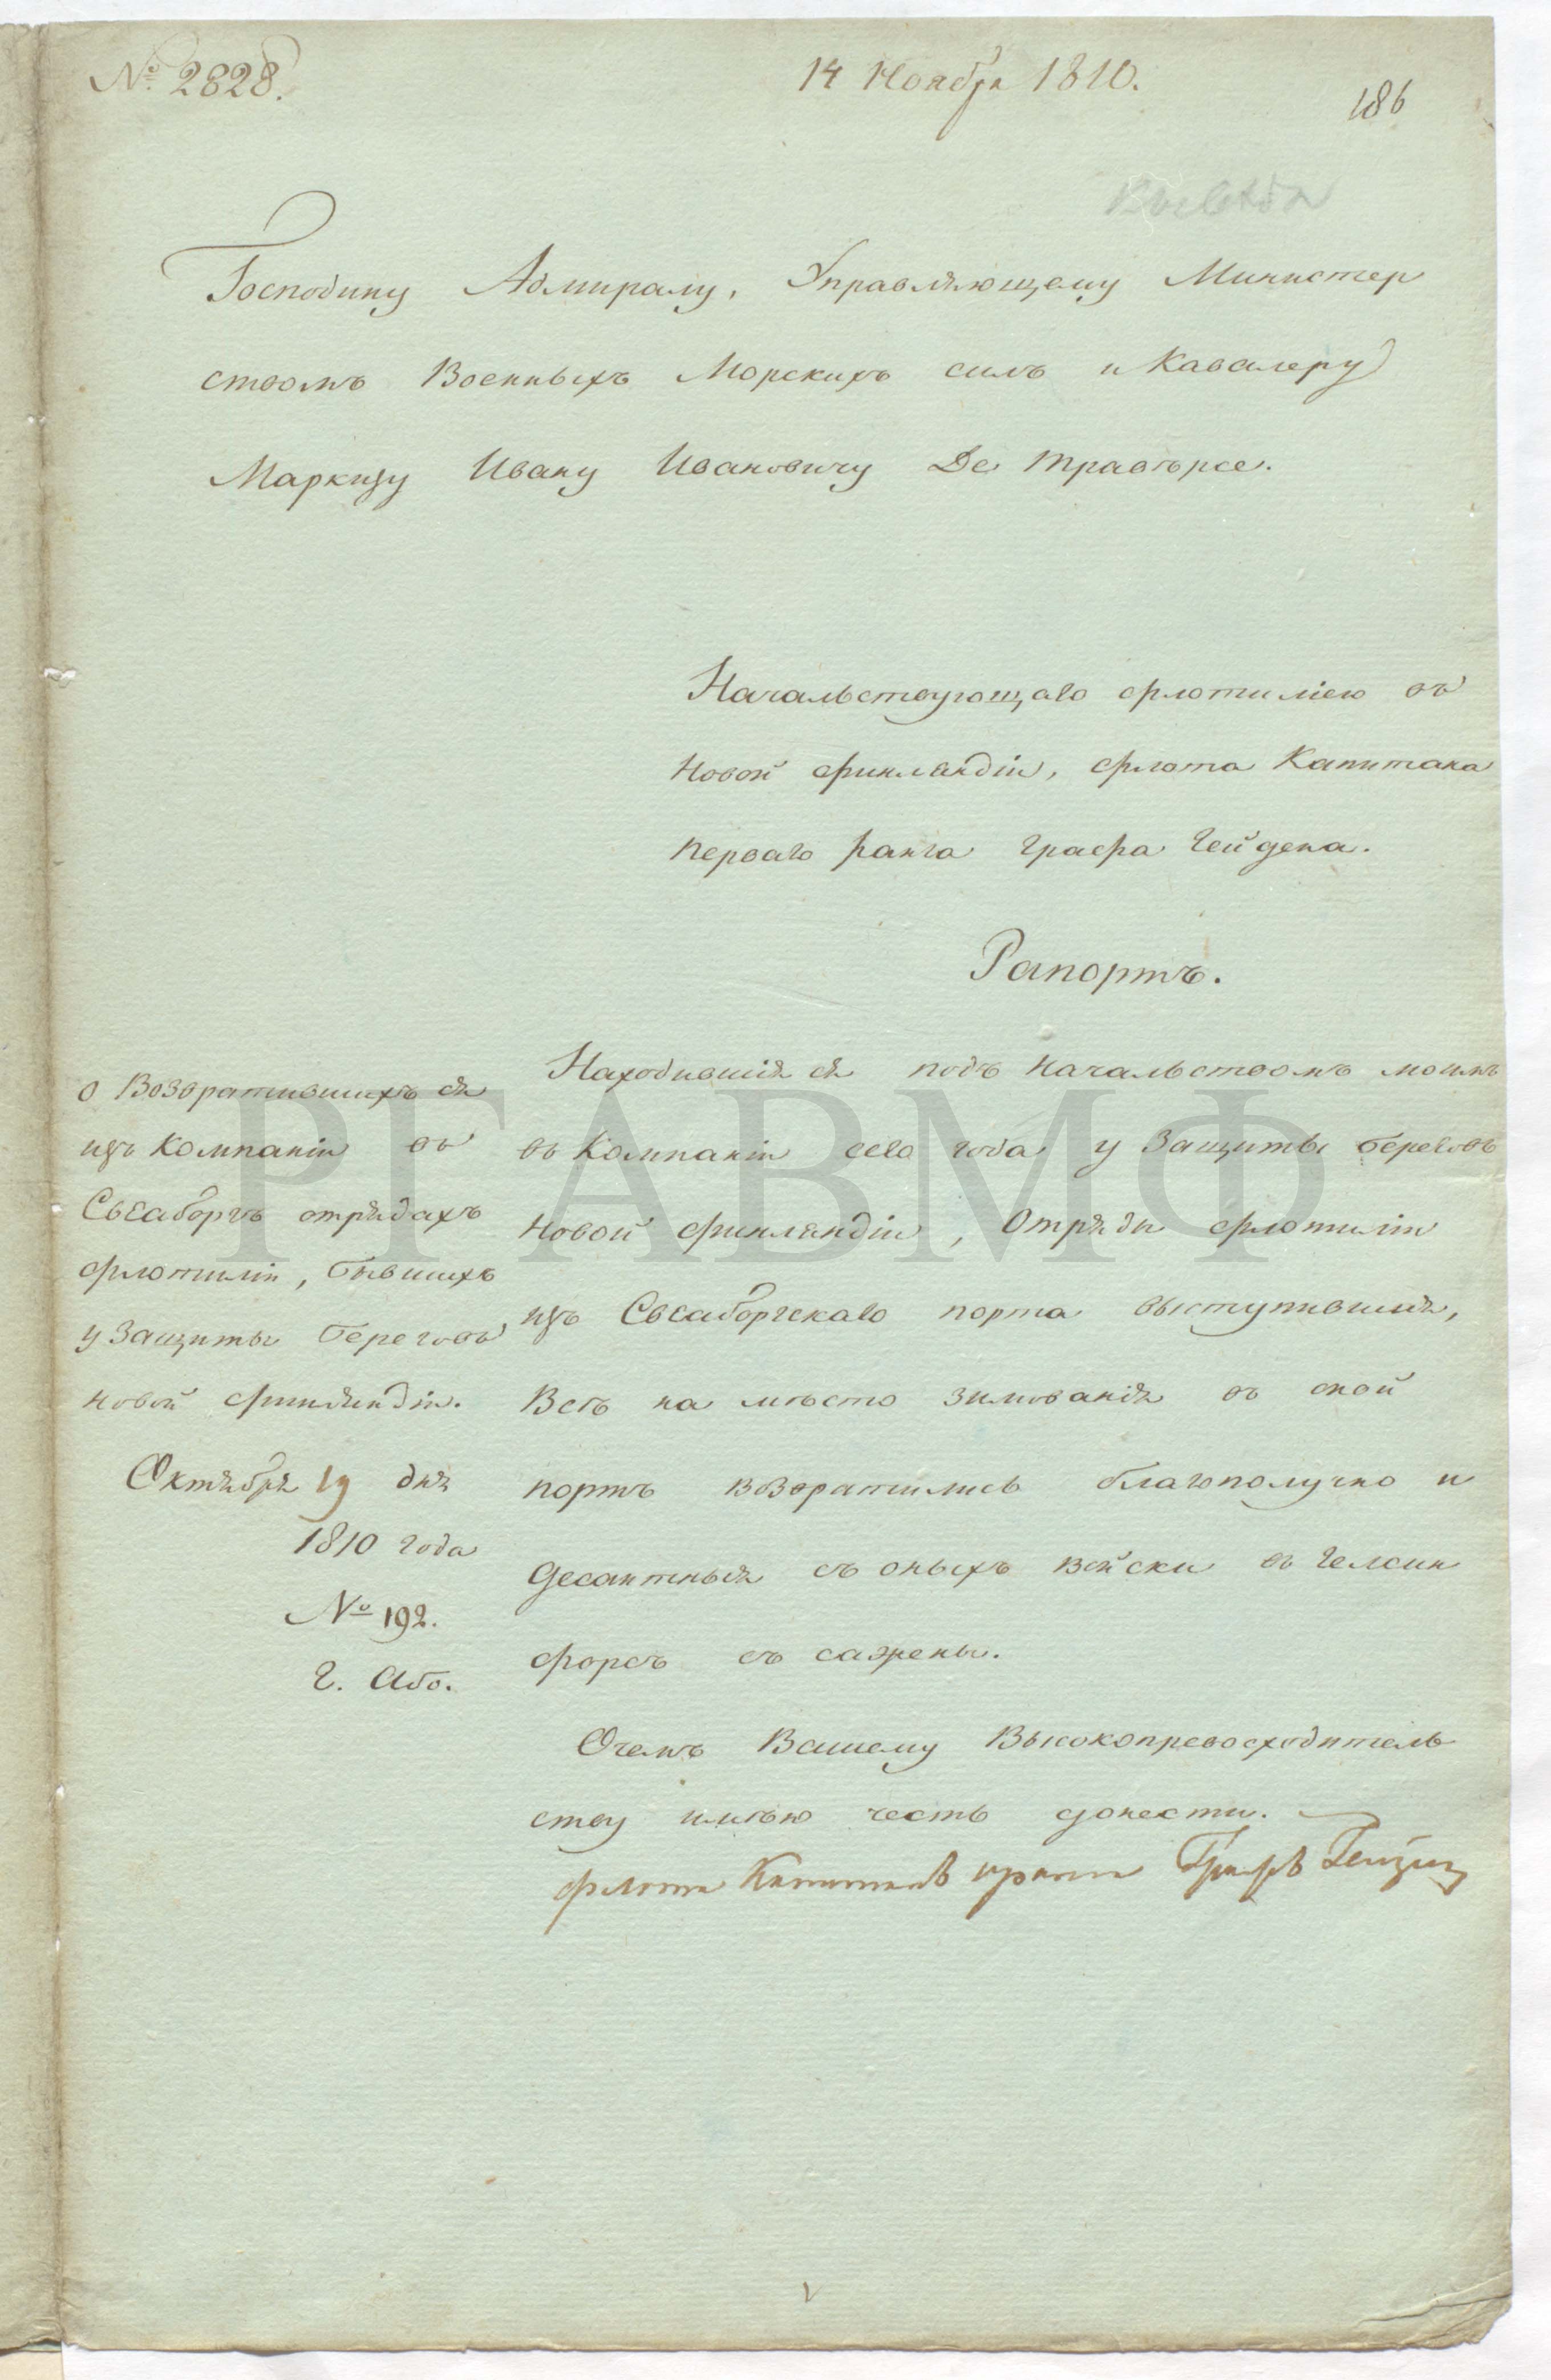 № 2828.
14 Ноября 1810.
186
Господину Адмиралу, Управляющему Министер
ствомъ Военныхъ Морскихъ силъ и Кавалеру
Маркизу Ивану Ивановичу Де Травѣрсе.
Начальствующаго флотиліею въ
Новой Финляндіи, флота Капитана
перваго ранга Графа Гейдена.
Рапортъ.
о Возвратившихъ ся
изъ Компаніи въ
Свеаборгъ отрядахъ
флотиліи, бывшихъ
у Защиты береговъ
новой Финляндіи.
Октября 19 дня
1810 года
№ 192.
Г. Або.
Находившія ся подъ начальствомъ моимъ
въ Компаніи сего года у Защиты береговъ
Новой Финляндіи, Отряды флотиліи
изъ Свеаборгскаго порта выступившія,
Всѣ на мѣсто зимованія въ оной
портъ возвратились благополучно и
десантныя съ оныхъ войски въ Гелсин
форсъ съ сажены.
Очемъ Вашему Высокопревосходитель
ству имѣю честь донести.
флота Капитанъ 1 ранга Графъ Гейденъ
РГАВМФ